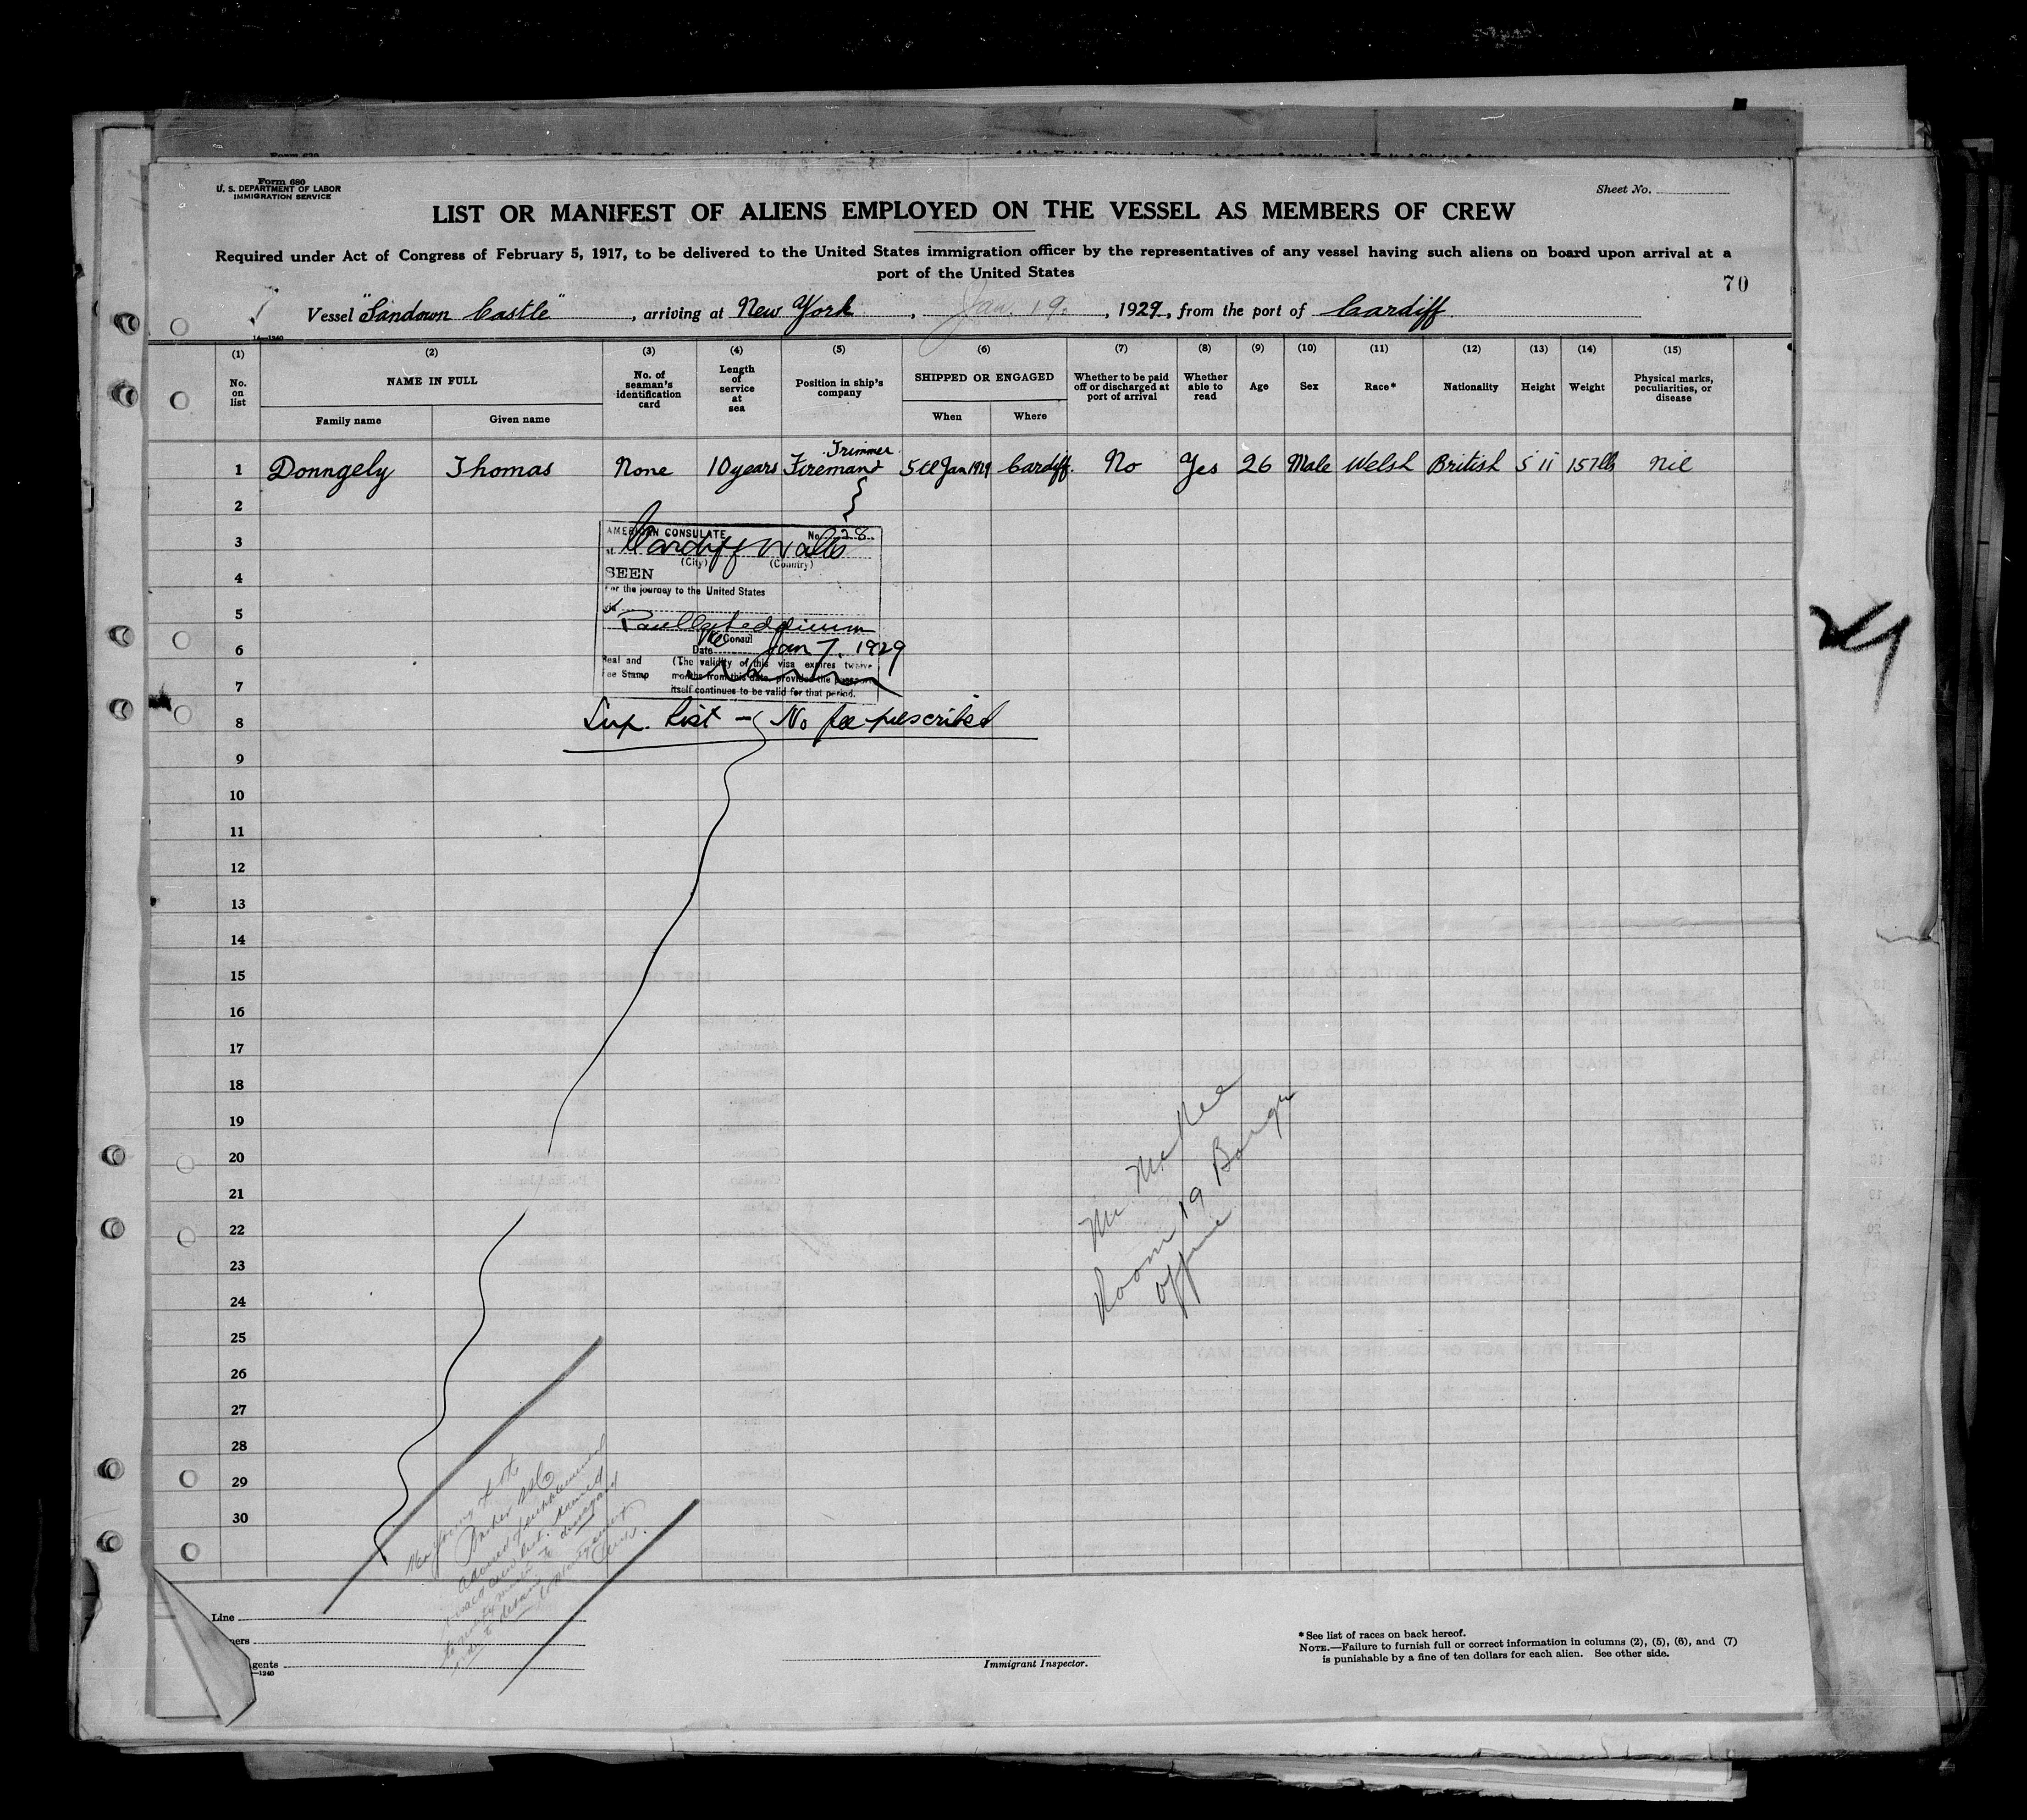 Form 680
U. S. DEPARTMENT OF LABOR
IMMIGRATION SERVICE
Sheet No.
LIST OR MANIFEST OF ALIENS EMPLOYED ON THE VESSEL AS MEMBERS OF CREW
Required under Act of Congress of February 5, 1917, to be delivered to the United States immigration officer by the representatives of any vessel having such aliens on board upon arrival at a
port of the United States
70
Vessel "Sandown Castle", arriving at New York, Jan. 19., 1929, from the port of Cardiff
14—1240
(1) (2) (3) (4) (5) (6) (7) (8) (9) (10) (11) (12) (13) (14) (15)
No. on list
NAME IN FULL
Family name
Given name
No. of seaman's identification card
Length of service at sea
Position in ship's company
SHIPPED OR ENGAGED
When
Where
Whether to be paid off or discharged at port of arrival
Whether able to read
Age
Sex
Race*
Nationality
Height
Weight
Physical marks, peculiarities, or disease
Trimmer
1 Donngely Thomas None 10 years Fireman & 5th Jan 1929 Cardiff. No Yes 26 Male Welsh British 5 11 157 lb Nil
2
3
4
5
6
7
8
9
10
11
12
13
14
15
16
17
18
19
20
21
22
23
24
25
26
27
28
29
30
AMERICAN CONSULATE No. 28
at Cardiff Wales
(City) (Country)
SEEN
For the journey to the United States
via
Vice Consul
Date Jan 7. 1929
Seal and Fee Stamp
(The validity of this visa expires twelve
months from this date, provided the passport
itself continues to be valid for that period.
Sup. List - No fee prescribed
29
Mr McKee
Room 19 Barge
Office
Line
ners
gents
—1240
Immigrant Inspector.
* See list of races on back hereof.
NOTE.—Failure to furnish full or correct information in columns (2), (5), (6), and (7)
is punishable by a fine of ten dollars for each alien. See other side.